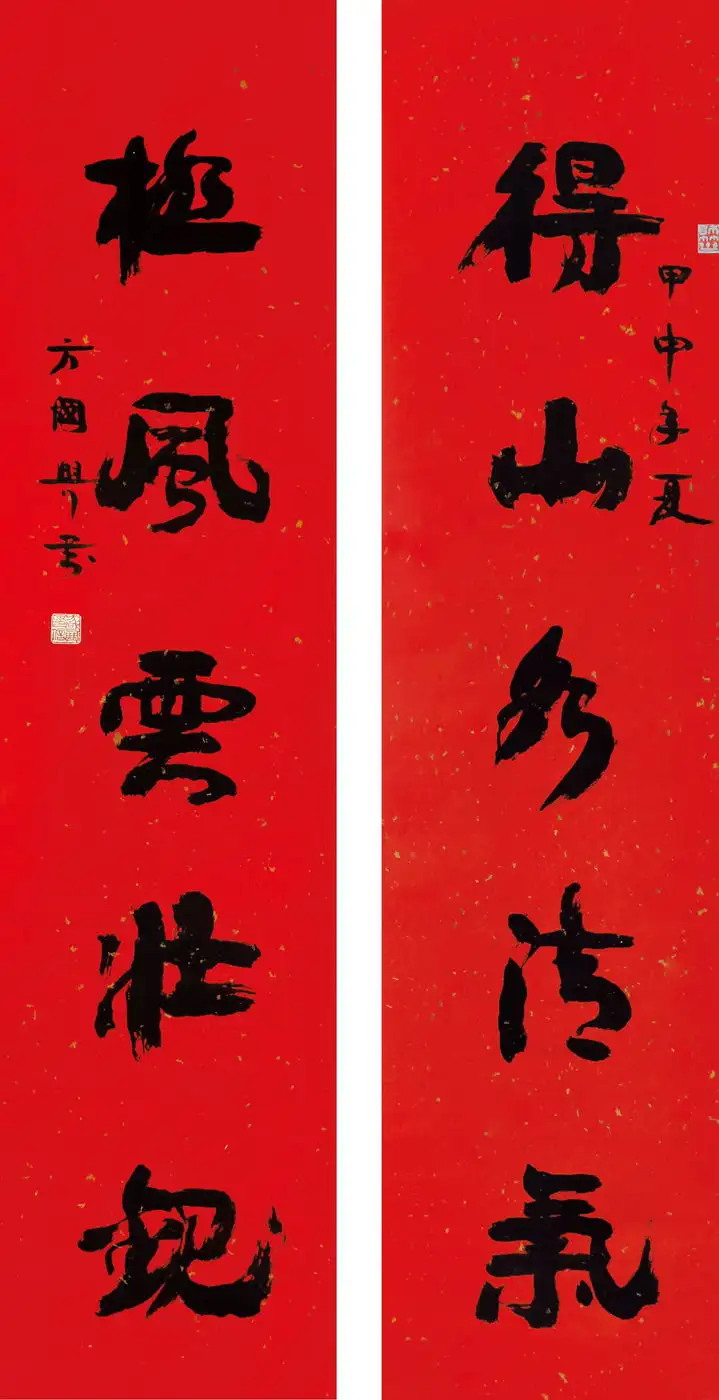 得山水清氣
甲申年夏
極風雲壯觀
方國興書